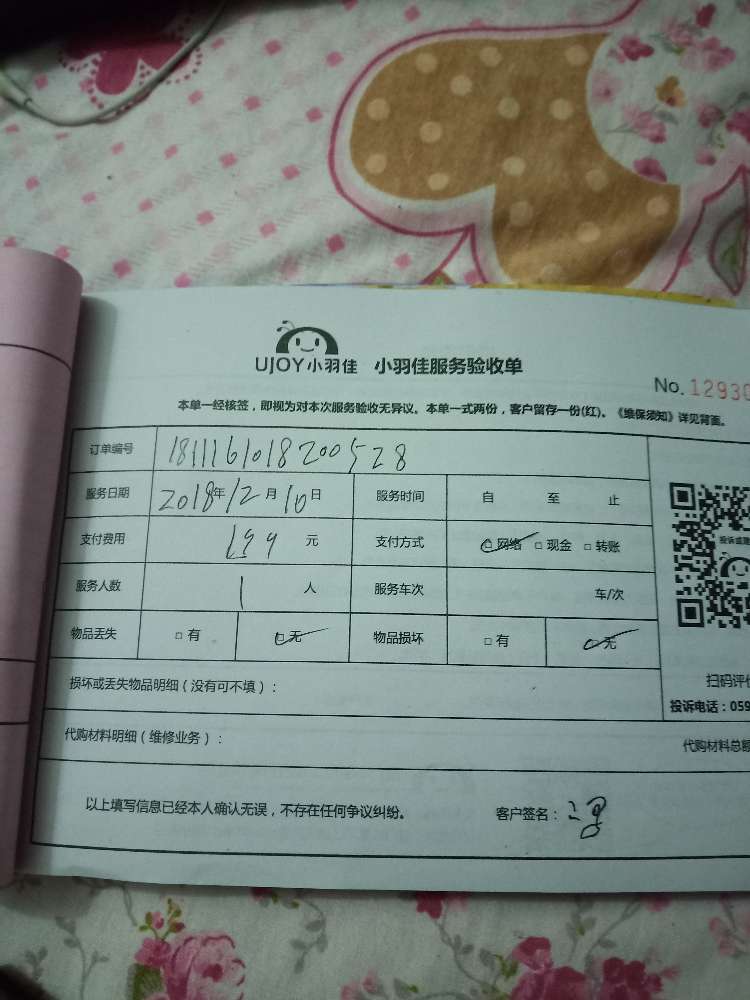 UJOY小羽佳 小羽佳服务验收单
No. 12930
本单一经核签，即视为对本次服务验收无异议。本单一式两份，客户留存一份(红)。《维保须知》详见背面。
订单编号 181116101820052 8
服务日期 2018年12月10日 服务时间 自 至 止
支付费用 199元 支付方式 □网络 □现金 □转账
服务人数 1人 服务车次 车/次
物品丢失 □有 □无 物品损坏 □有 □无
投诉或
扫码评
投诉电话：059
损坏或丢失物品明细（没有可不填）：
代购材料明细（维修业务）： 代购材料总额
以上填写信息已经本人确认无误，不存在任何争议纠纷。 客户签名：